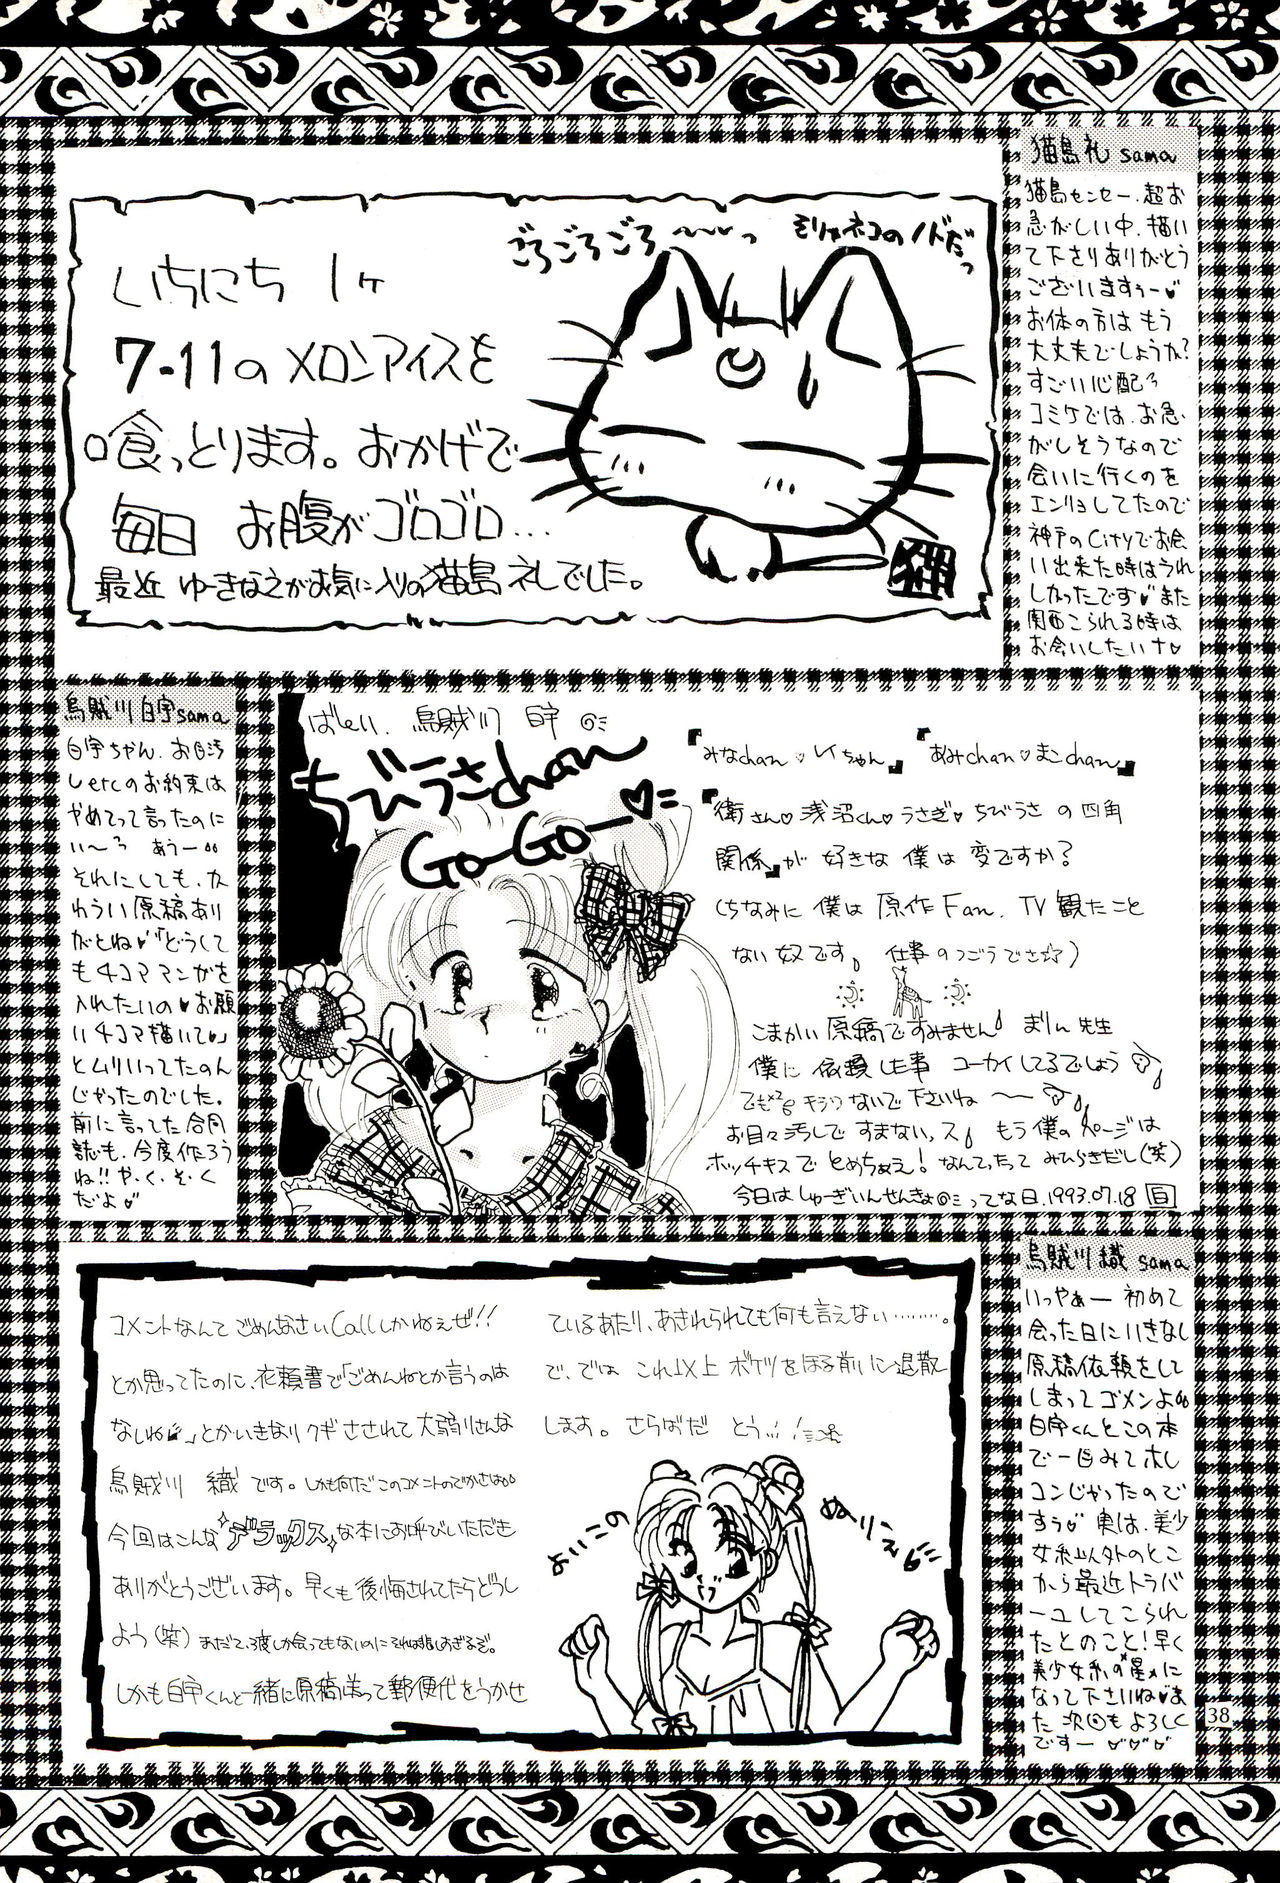 猫島礼 sama
猫島センセー、超お
急がしい中、描い
て下さりありがとう
ございますぅー♥
お体の方はもう
大丈夫でしょうか?
すごい心配〜
コミケでは、お急
がしそうなので
会いに行くのを
エンリョしてたので
神戸のCityでお会
い出来た時はうれ
しかったです♥また
関西こられる時は
お会いしたいナ♥
ごろごろごろ〜〜〜っ
そりゃネコのノドだっ
いちにち 1ヶ
7-11のメロンアイスを
喰っとります。おかげで
毎日 お腹がゴロゴロ…
最近 ゆーきなえがお気に入りの猫島礼でした。
烏賊川白宇sama
白宇ちゃん、お目汚
しetcのお約束は
やめてって言ったのに
い〜〜 あぅー
それにしても、か
わうい原稿あり
がとね♥「どうして
も4コママンガを
入れたいの♥お願
い4コマ描いて♥」
とムリいってたのん
じゃったのでした。
前に言ってた合同
誌も、今度作ろう
ね!!や・く・そ・く
だよ♥
ばーい、烏賊川 白宇
ちびうさchan
Go-Go-♥
『みなchan♡レイちゃん』『あみchan♡まこchan』
『衛さん♡浅沼くん♡うさぎ♡ちびうさ の四角
関係』が 好きな 僕は 変ですか?
(ちなみに 僕は 原作Fan、TV観たこと
ない奴です。仕事のつごうでさ)
こまかい原稿ですみません。まりん先生
僕に 依頼した事 コーカイしてるでしょう
でも キラワないで下さいね 〜
お目々汚しで すまないっス。もう僕のページは
ホッチキスで とめちゃえ! なんてったって みひらきだし(笑)
今日は しゅーぎいんせんきょ ってな日、1993.07.18
烏賊川織 sama
いっやぁー 初めて
会った日にいきなし
原稿依頼をして
しまってゴメンよ
白宇くんとこの本
で一目みてホレ
コンじゃったので
すぅ♥ 実は、美少
女系以外のとこ
から最近トラバ
ーユしてこられ
たとのこと!早く
美少女系の"星"に
なって下さいね♥ま
た次回もよろしく
ですー ♥♥♥
コメントなんてごめんなさいCallしかねぇぜ!!
とか思ってたのに、依頼書で「ごめんねとか言うのは
なしね」とかいきなりクギさされて大弱りさんな
烏賊川 織です。しかも何だこのコメントのでかさは
今回はこんなデラックスな本にお呼びいただき
ありがとうございます。早くも後悔されてたらどうし
よう(笑) まだて、一度しか会ってもないのにそれは悲しすぎるぞ。
しかも白宇くんと一緒に原稿送って郵便代をうかせ
ているあたり、あきれられても何も言えない………。
で、では これ以上 ボケツをほる前に退散
します。さらばだ とうっ!!
よいこの
ぬりえ
38